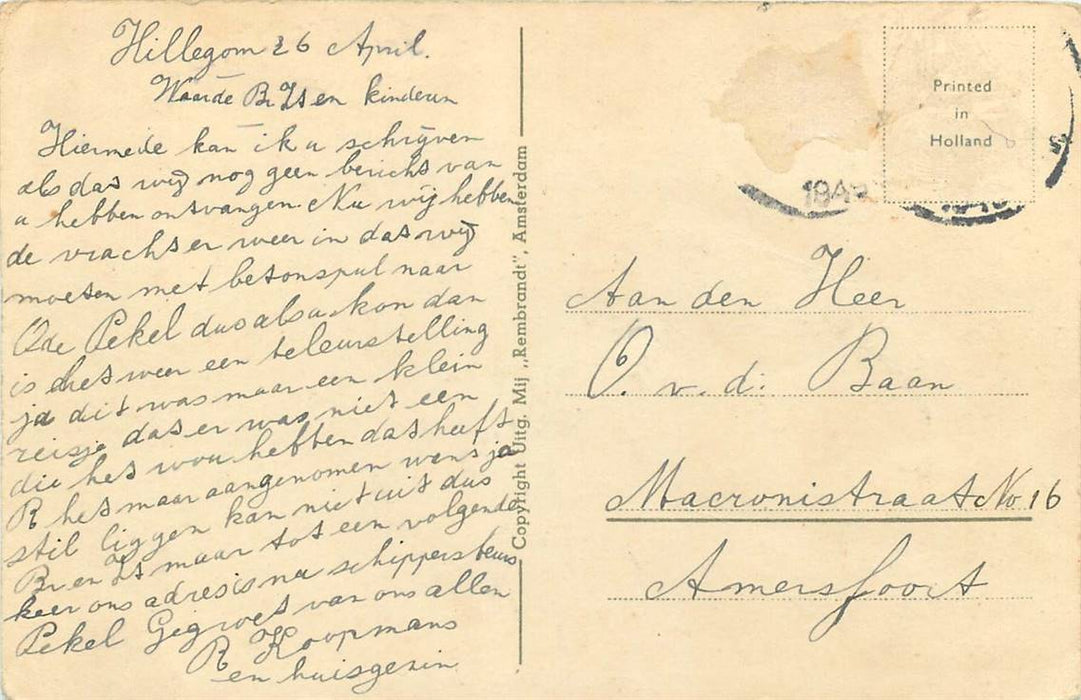 Hillegom 26 April.
Waarde Br Zs en kinderen
Hiermede kan ik u schrijven
als dat wij nog geen bericht van
u hebben ontvangen. Nu wij hebben
de vracht er weer in dat wij
moeten met betonspul naar
Ode Pekel dus als u kon dan
is het weer een teleurstelling
ja dit was maar een klein
reisje dat er was niet een
die het wou hebben dat heeft
R het maar aangenomen want ja
stil liggen kan niet uit dus
Br en Zs maar tot een volgende
keer ons adres is nu schippersbeurs
Pekel Gegroet van ons allen
R Koopmans
en huisgezin
Copyright Uitg. Mij „Rembrandt", Amsterdam
Printed
in
Holland
194
Aan den Heer
O. v. d. Baan
Macronistraat No 16
Amersfoort